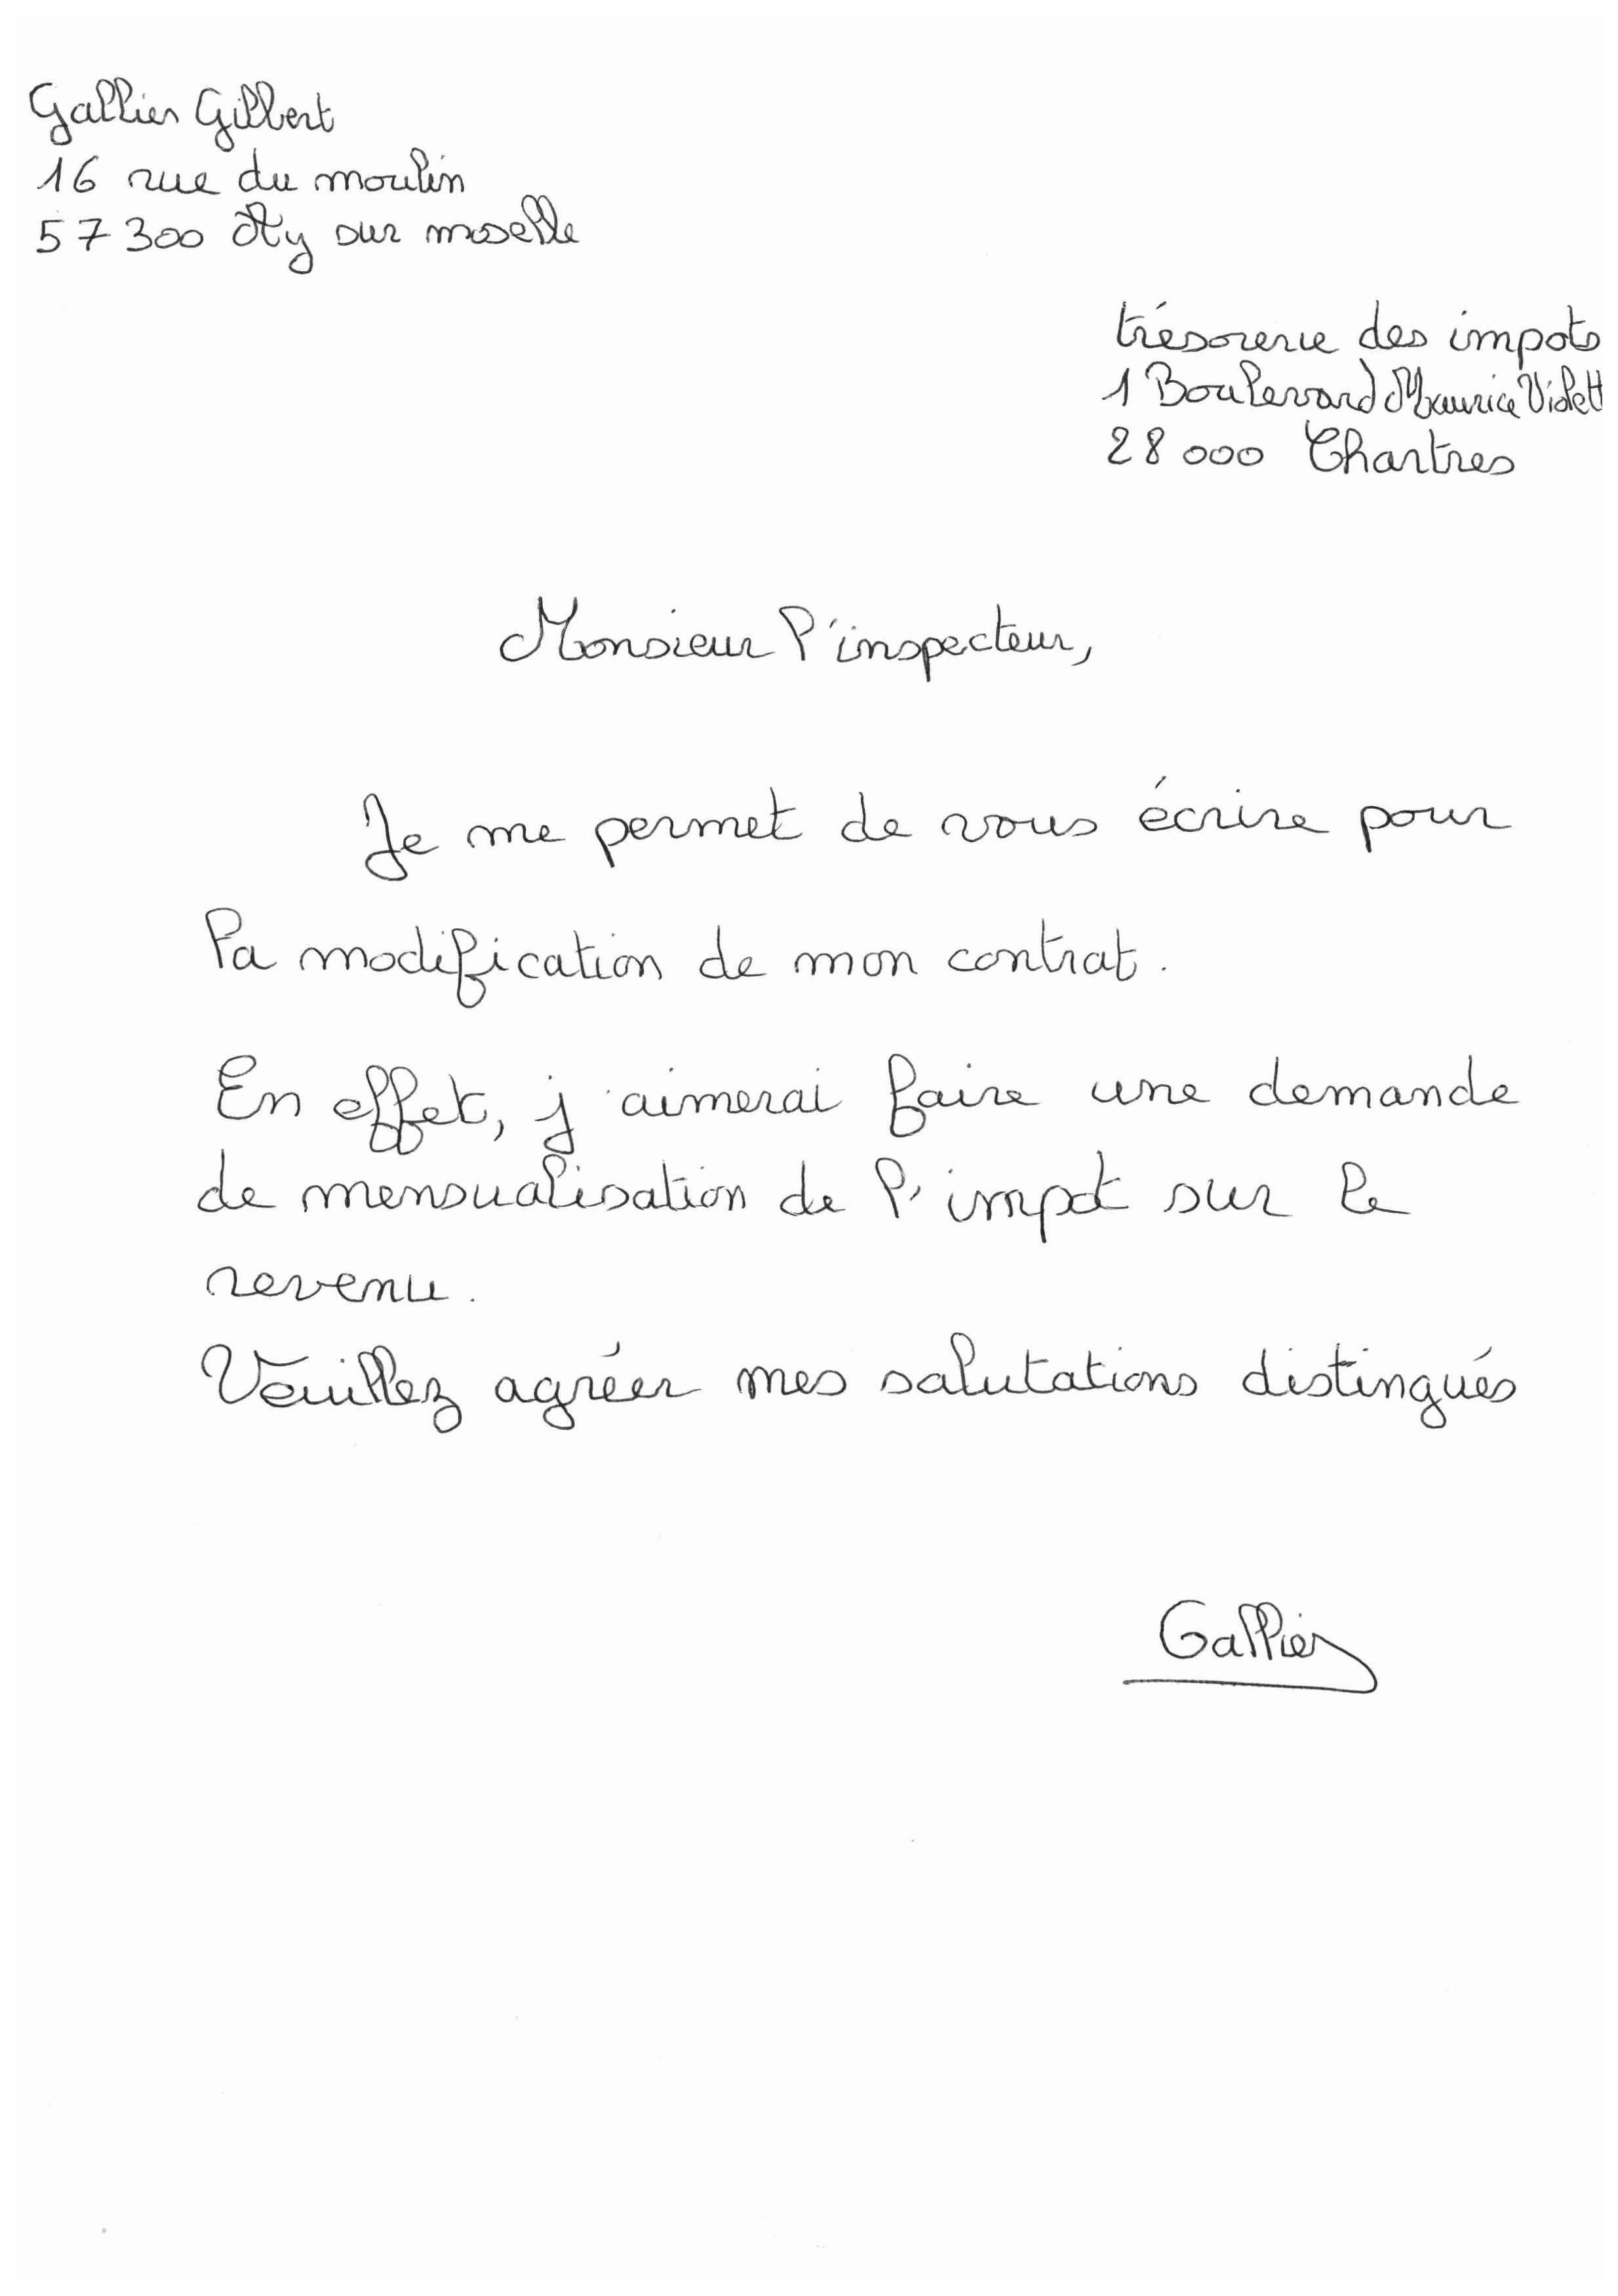 Gallier Gilbert
16 rue du moulin
57300 Ay sur moselle
trésorerie des impots
1 Boulevard Maurice Violett
28 000 Chartres
Monsieur l'inspecteur,
Je me permet de vous écrire pour
la modification de mon contrat.
En effet, j'aimerai faire une demande
de mensualisation de l'impot sur le
revenu.
Veuillez agréer mes salutations distingués
Gallier